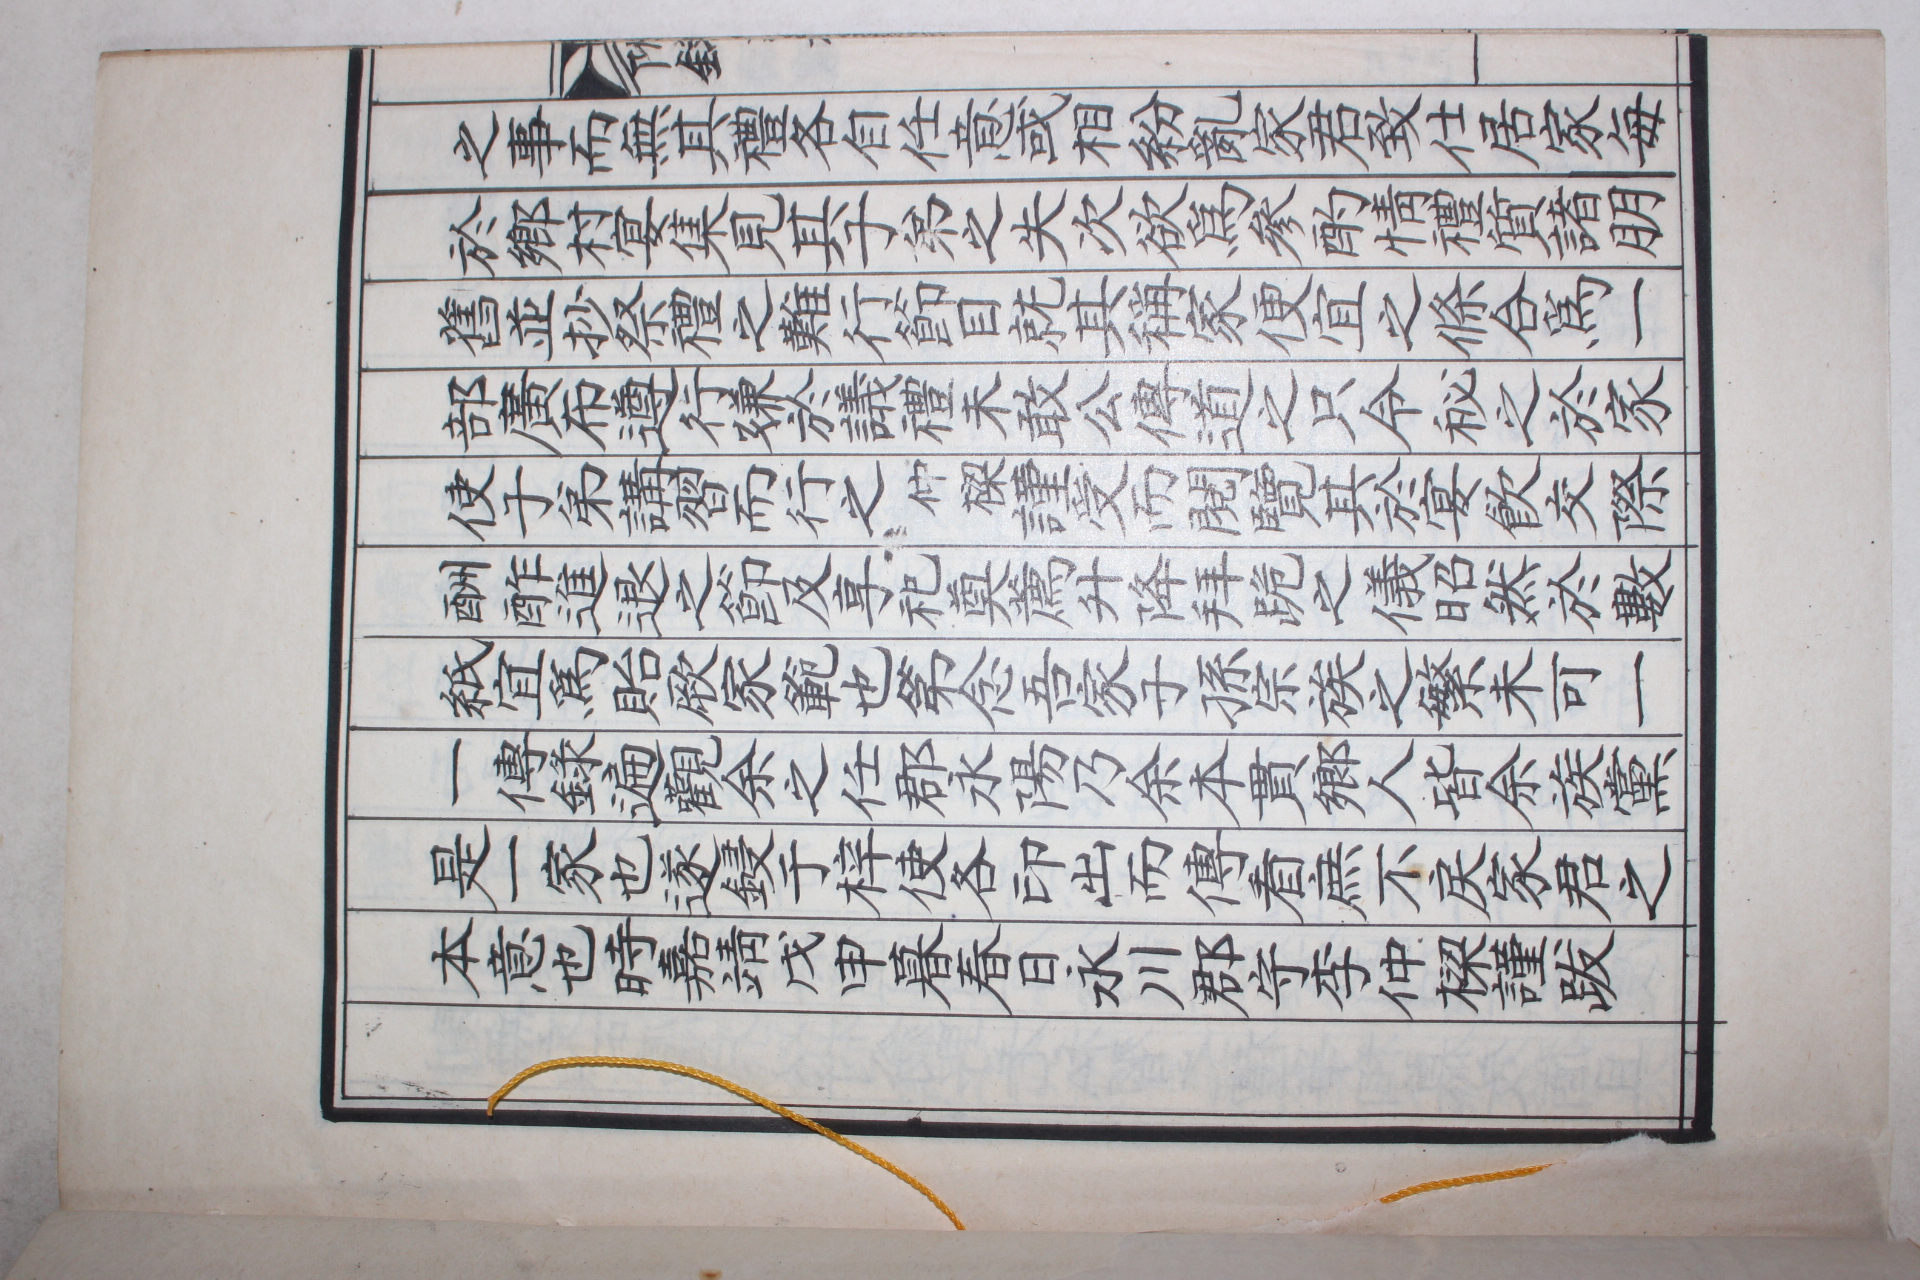 之事而無其禮各自任意或相紛亂家君致仕居家每
於鄉村宴集見其子弟之失次欲爲參酌情禮質諸朋
舊並抄祭禮之難行節目就其稱家便宜之條合爲一
部廣布遵行嫌於議禮未敢公傳道之只令秘之於家
使子弟講習而行之仲樑謹受而閱覽其於宴飮交際
酬酢進退之節及享祀奠薦升降拜跪之儀昭然於數
紙宜爲貽厥家範也第念吾家子孫宗族之繁未可一
一傳錄遍觀余之任郡永陽乃余本貫鄉人皆余族黨
是一家也遂鋟于梓使各印出而傳看庶不戾家君之
本意也時嘉靖戊申暮春日永川郡守李仲樑謹跋